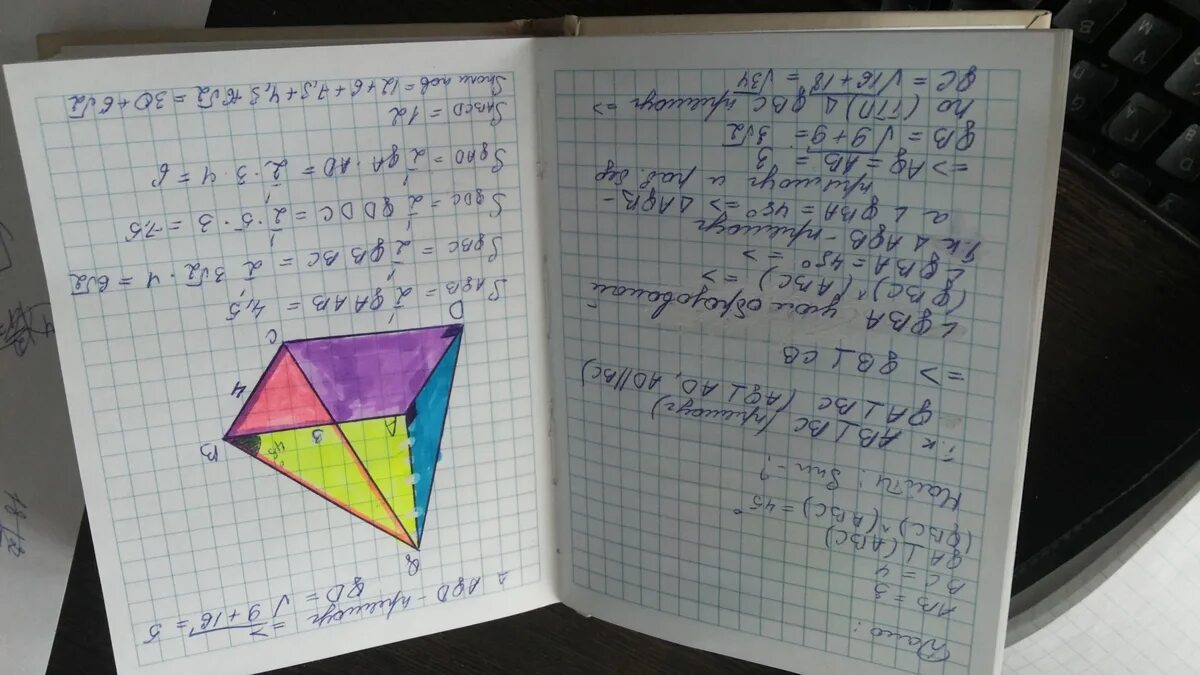 Дано:
AB = 3
BC = 4
QA ⊥ (ABC)
(QBC)^(ABC) = 45°
Найти: Sпп - ?
т.к AB ⊥ BC (прямоуг)
QA ⊥ BC (AQ ⊥ AD, AD || BC)
=> QB ⊥ CB
∠ QBA - угол образованный
(QBC)^(ABC) =>
∠ QBA = 45° =>
т.к Δ AQB - прямоуг
а ∠ QBA = 45° => Δ AQB -
прямоуг и рав. бед
=> AQ = AB = 3
QB = √9+9 = 3√2
по (ТТП) Δ QBC прямоуг =>
QC = √16+18 = √34
Δ AQD - прямоуг =>
QD = √9+16 = 5
Q
B
45°
3
A
4
C
D
SAQB = 1/2 QA AB = 4,5
SQBC = 1/2 QB BC = 1/2 3√2 · 4 = 6√2
SQDC = 1/2 QD DC = 1/2 · 5 · 3 = 7,5
SQAD = 1/2 QA · AD = 1/2 · 3 · 4 = 6
SABCD = 12
Sполн пов = 12+6+7,5+4,5+6√2 = 30+6√2